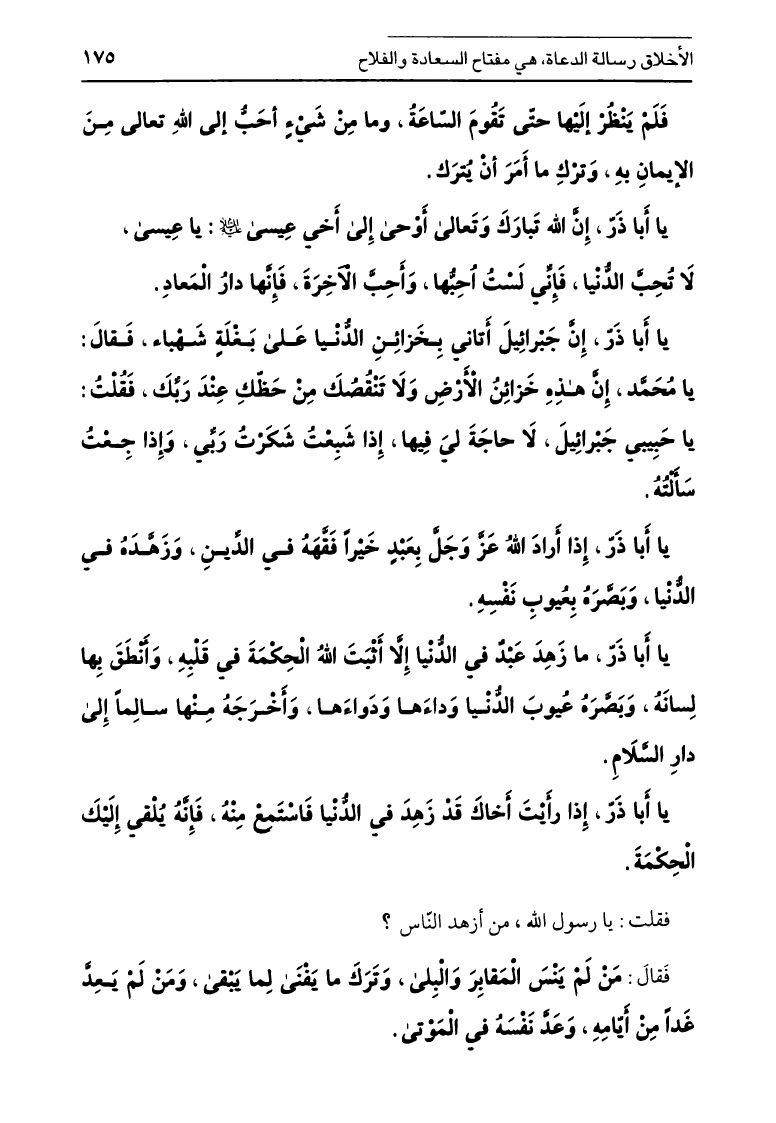 الأخلاق رسالة الدعاة، هي مفتاح السعادة والفلاح ١٧٥
فَلَمْ يَنْظُرْ إِلَيْها حتّى تَقُومَ السّاعَةُ ، وما مِنْ شَيْءٍ أحَبُّ إلى اللهِ تعالى مِـنَ
الإيمانِ بهِ ، وَتركِ ما أَمَرَ أنْ يُتركَ .
يا أَبا ذَرّ ، إِنَّ الله تَبارَكَ وَتَعالىٰ أَوْحىٰ إِلىٰ أَخي عِيسىٰ ﷷ : يا عِيسىٰ ،
لَا تُحِبَّ الدُّنْيا ، فَإِنِّي لَسْتُ أُحِبُّها ، وَأَحِبَّ الْآخِرَةَ ، فَإِنَّها دارُ الْمَعادِ .
يا أَبا ذَرّ ، إِنَّ جَبْرائِيلَ أَتاني بِـخَزائِـنِ الدُّنْـيا عَـلىٰ بَـغْلَةٍ شَـهْباء ، فَـقالَ :
يا مُحَمَّد ، إِنَّ هـٰذِهِ خَزائِنُ الْأَرْضِ وَلَا تَنْقُصُكَ مِنْ حَظِّكِ عِنْدَ رَبِّكَ ، فَقُلْتُ :
يا حَبِيبي جَبْرائِيلَ ، لَا حاجَةَ ليَ فِيها ، إِذا شَبِعْتُ شَكَرْتُ رَبِّي ، وَإِذا جِـعْتُ
سَأَلْتُهُ .
يا أَبا ذَرّ ، إِذا أَرادَ اللهُ عَزَّ وَجَلَّ بِعَبْدٍ خَيْراً فَقَّهَهُ فـي الدِّيـنِ ، وَزَهَّـدَهُ فـي
الدُّنْيا ، وَبَصَّرَهُ بِعُيوبِ نَفْسِهِ .
يا أَبا ذَرّ ، ما زَهِدَ عَبْدٌ في الدُّنْيا إِلَّا أَثْبَتَ اللهُ الْحِكْمَةَ في قَلْبِهِ ، وَأَنْطَقَ بِها
لِسانَهُ ، وَبَصَّرَهُ عُيوبَ الدُّنْـيا وَداءَهـا وَدَواءَهـا ، وَأَخْـرَجَهُ مِـنْها سـالِماً إِلىٰ
دارِ السَّلَامِ .
يا أَبا ذَرّ ، إِذا رأَيْتَ أَخاكَ قَدْ زَهِدَ في الدُّنْيا فَاسْتَمِعْ مِنْهُ ، فَإِنَّهُ يُلْقي إِلَيْكَ
الْحِكْمَةَ .
فقلت : يا رسول الله ، من أزهد النّاس ؟
فَقالَ : مَنْ لَمْ يَنْسَ الْمَقابِرَ وَالْبِلىٰ ، وَتَرَكَ ما يَفْنَىٰ لِما يَبْقىٰ ، وَمَنْ لَمْ يَـعِدَّ
غَداً مِنْ أَيّامِهِ ، وَعَدَّ نَفْسَهُ في الْمَوْتىٰ .